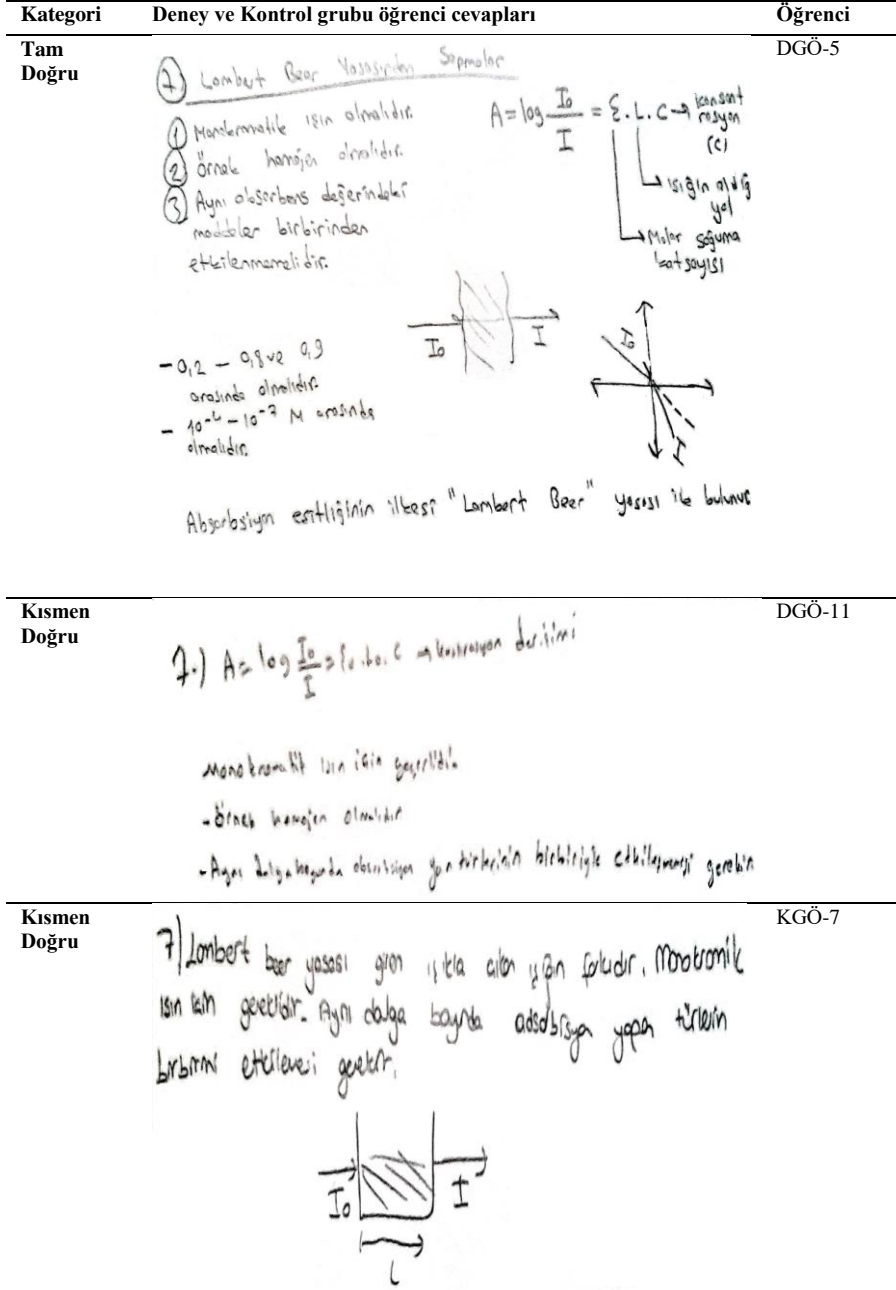 Kategori Deney ve Kontrol grubu öğrenci cevapları Öğrenci
Tam Doğru DGÖ-5
7) Lambert Beer Yasasından Sapmalar
1 Monokromatik ışın olmalıdır.
2 Örnek homojen olmalıdır.
3 Aynı absorbans değerindeki
maddeler birbirinden
etkilenmemelidir.
A = log I₀/I = ε.L.C → konsant
rasyon
(C)
ışığın aldığ
yol
Molar soğuma
katsayısı
I₀ I
I₀
I
- 0,2 - 0,8 ve 0,9
arasında olmalıdır.
- M arasında
olmalıdır.
Absorbsiyon eşitliğinin ilkesi "Lambert Beer" yasası ile bulunur
Kısmen Doğru DGÖ-11
7.) A = log I₀/I = C
Monokromatik ışın için geçerlidir.
- Örnek homojen olmalıdır
- Aynı dalga boyunda birbiriyle etkileşmemesi gerekir
Kısmen Doğru KGÖ-7
7) Lambert beer yasası giren ışıkla çıkan ışığın farkıdır.
ışın için gereklidir. Aynı dalga boyunda adsobisyon yapan türlerin
birbirini gerekir.
I₀ I
L